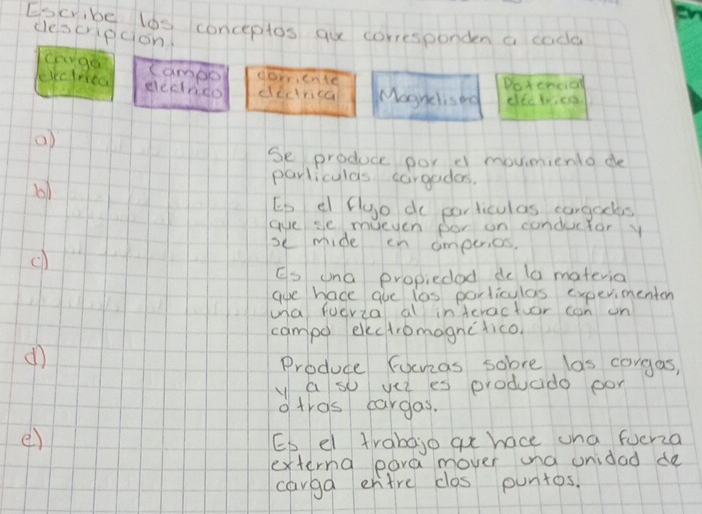 Escribe los conceptos que corresponden a cada
descripcion.
carga eléctrica
Campo eléctrico
corriente eléctrica
Magnetismo
Potencial eléctrico
a)
Se produce por el movimiento de
particulas cargadas.
b)
Es el flujo de particulas cargadas
que se mueven por un conductor y
se mide en amperios.
c)
Es una propiedad de la materia
que hace que las particulas experimentan
una fuerza al interactuar con un
campo electromagnético.
d)
Produce fuerzas sobre las cargas,
y a su vez es producido por
otras cargas.
e)
Es el trabajo que hace una fuerza
externa para mover una unidad de
carga entre dos puntos.